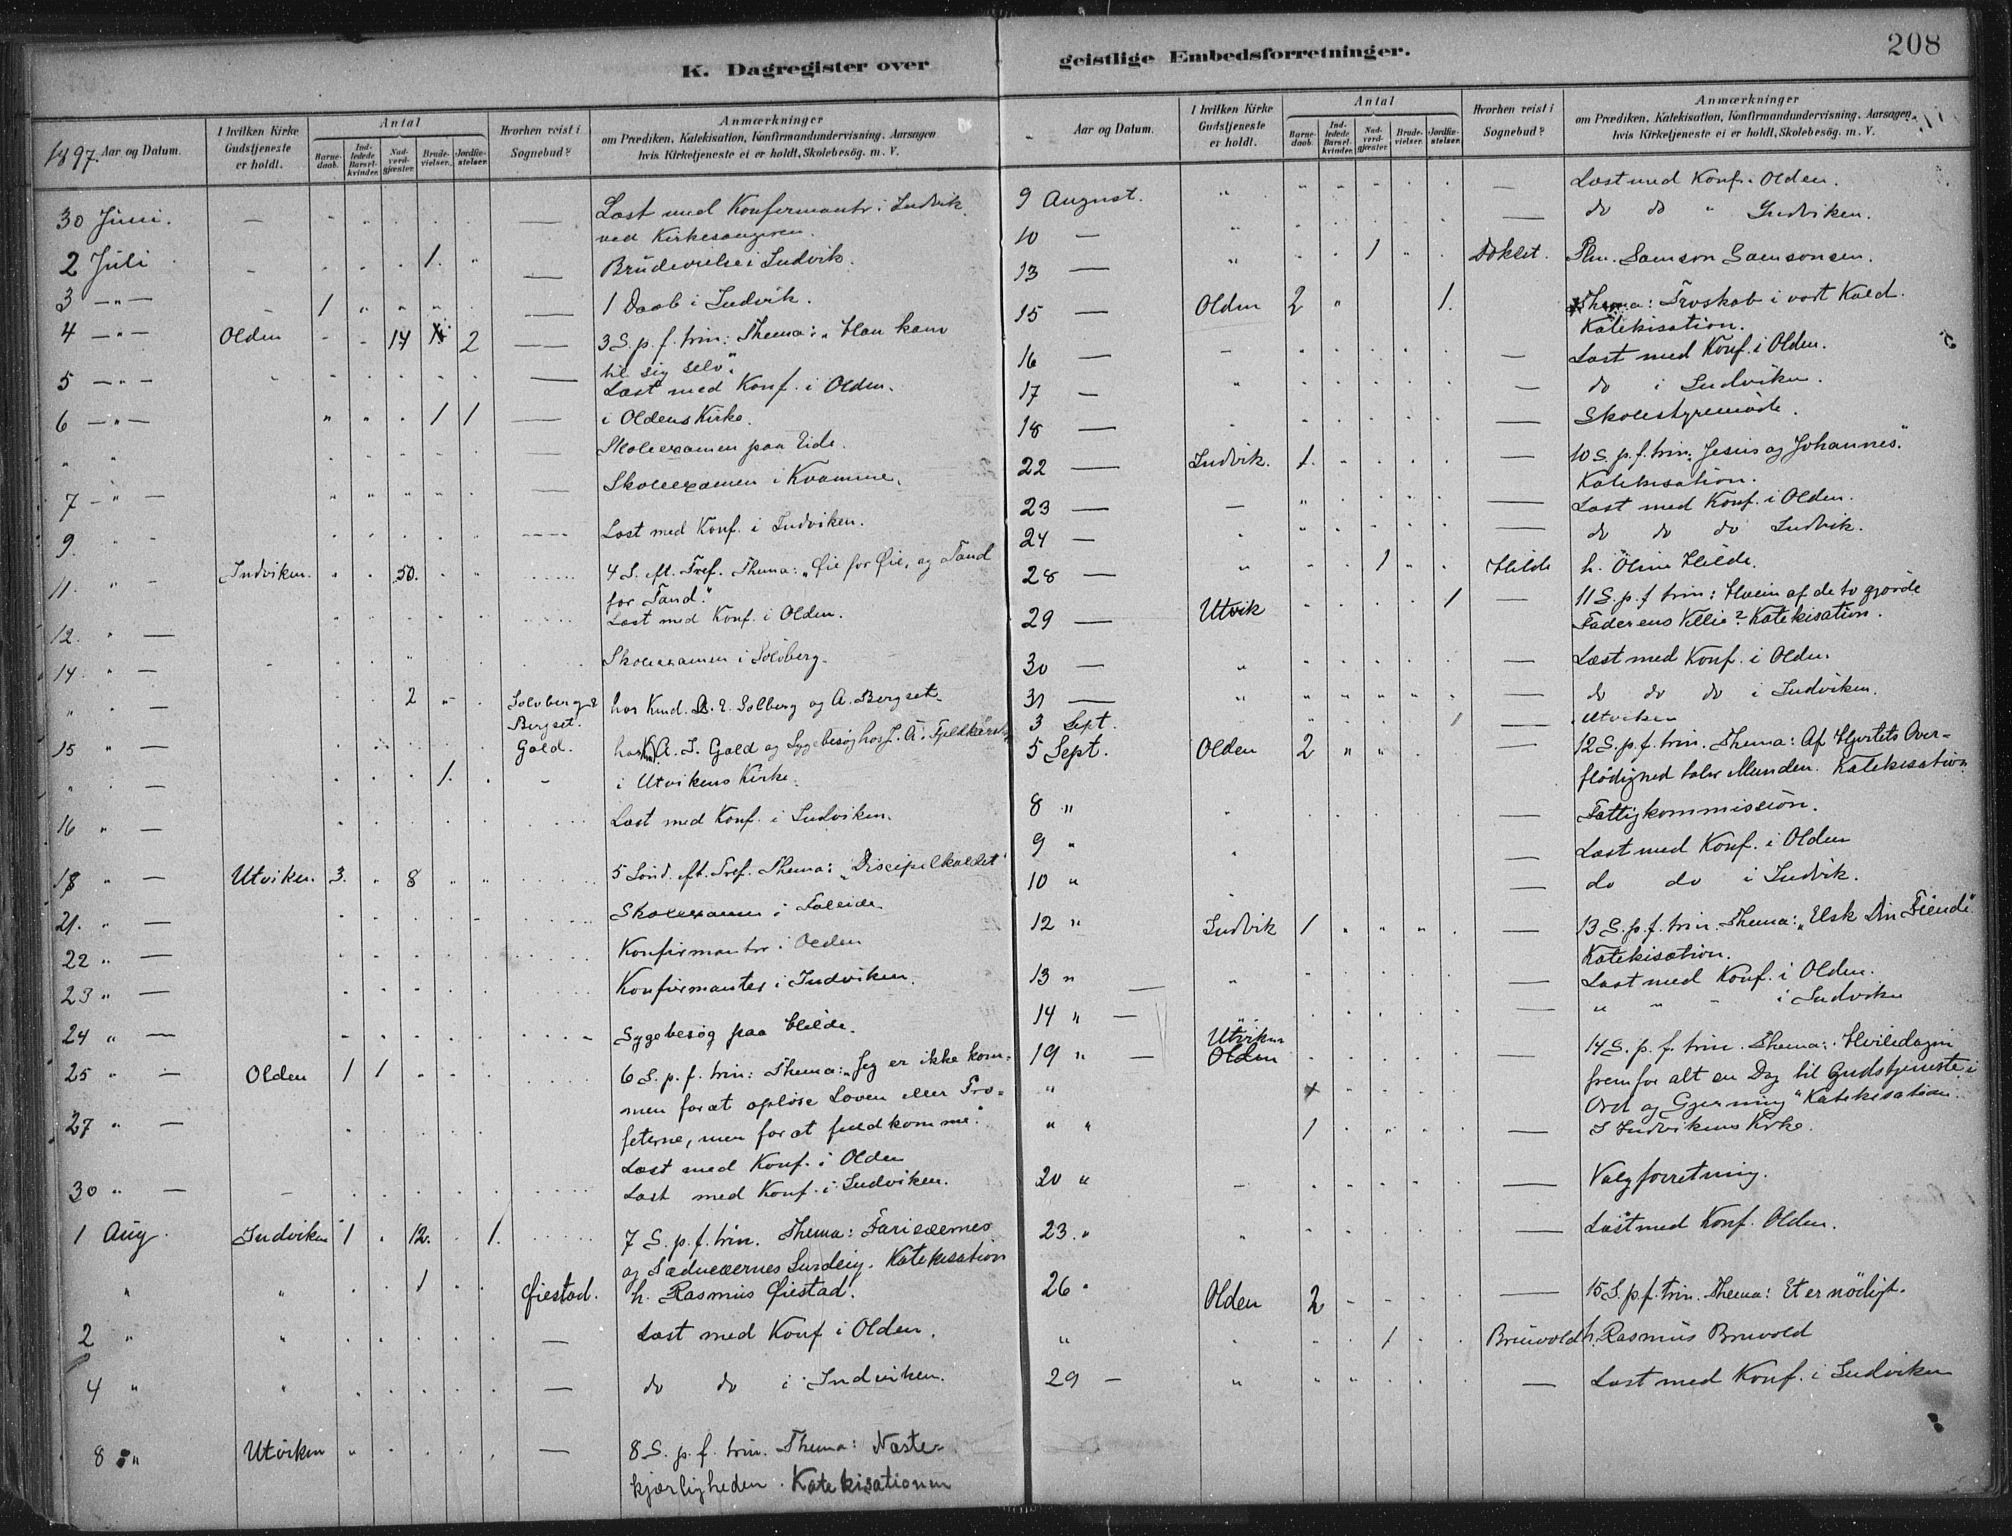 K. Dagregister over
geistlige Embedsforretninger.
208
1897. Aar og Datum.
I hvilken Kirke Gudstjeneste er holdt.
Antal
Barnedaab.
Indledede Barselkvinder.
Nadverdgjæster.
Brudevielser.
Jordfæstelser.
Hvorhen reist i Sognebud?
Anmærkninger
om Prædiken, Katekisation, Konfirmandundervisning, Aarsagen
hvis Kirketjeneste ei er holdt, Skolebesøg. m. V.
30 Juni. — Læst med Konfirmanter i Indvik
ved Kirkesangeren.
2 Juli 1. Brudevielse i Indvik.
3 — " — 1 1 Daab i Indvik.
4 — " — Olden 14 2 3 S. p. f. trin: Thema: „Han kom
til sig selv".
5 — " — Læst med Konf. i Olden.
6 — " — 1 1 i Oldens Kirke.
" " Skoleexamen paa Eide.
7 — " — Skoleexamen i Kvamme.
9. Læst med Konf. i Indviken.
11. " — Indviken. 50. 4 S. eft. Tref. Thema: „Øie for Øie, og Tand
for Tand."
12. " — Læst med Konf. i Olden.
14. " — Skoleexamen i Solberg.
" " — 2 Solberg & Bergset. hos Kmd. A. E. Solberg og A. Bergset
15 " — Gald. hos A. I. Gald og Sygebesøg hos J. A.
" " — 1. i Utvikens Kirke.
16 " — Læst med Konf. i Indviken.
18 " — Utviken. 3. 8 5 Sønd. eft. Tref. Thema: „Discipelkaldet"
21. " — Skoleexamen i Faleide
22 " — Konfirmanter i Olden
23 " — Konfirmanter i Indviken.
24 " — Sygebesøg paa Hilde.
25 " — Olden 1 1 6 S. p. f. trin: Thema: „Jeg er ikke kom-
men for at opløse Loven eller Pro-
feterne, men for at fuldkomme."
27 " — Læst med Konf. i Olden
30 " — Læst med Konf. i Indviken.
1 Aug. Indviken 1 12. 1. 7 S. p. f. trin. Thema: Farisæernes
og Saducæernes Surdeig. Katekisation
" " 1 Øiestad. h. Rasmus Øiestad.
2 " " — Læst med Konf i Olden.
4 " " — do do i Indviken.
8 " Utviken — 8 S. p. f. trin. Thema: Næste-
kjærligheden. Katekisationen
Aar og Datum.
I hvilken Kirke Gudstjeneste er holdt.
Antal
Barnedaab.
Indledede Barselkvinder.
Nadverdgjæster.
Brudevielser.
Jordfæstelser.
Hvorhen reist i Sognebud?
Anmærkninger
om Prædiken, Katekisation, Konfirmandundervisning, Aarsagen
hvis Kirketjeneste ei er holdt, Skolebesög. m. V.
9 August. " — Læst med Konf. Olden.
10 — " — do do " Indviken.
13 — " 1 Doklet. Plm. Samson Samsonsen.
15 — Olden 2 1. Thema: Troskab i vort Kald.
Katekisation.
16 — — Læst med Konf. i Olden.
17 — " — do i Indviken.
18 — — Skolestyremøde.
22 — Indvik. 1. — 10 S. p. f. trin: Jesus og Johannes."
Katekisation.
23 — — Læst med Konf. i Olden.
24 — — do do do Indvik.
28 — " 1 Hilde h. Oline Hilde.
29 — Utvik 1 — 11 S. p. f. trin: Hvem af de to gjorde
Faderens Villie? Katekisation.
30 — " — Læst med Konf. i Olden.
31 — " — do do do i Indviken.
3 Sept. 1 Utviken
5 Sept. Olden 2 — 12 S. p. f. trin. Thema: Af Hjertets Over-
flødighed taler Munden. Katekisation
8 " — Fattigkommission.
9 " — Læst med Konf. i Olden
10 " — do do i Indvik.
12 " Indvik 1 13 S. p. f. trin. Thema: „Elsk Din Fiende"
Katekisation.
13 " — Læst med Konf. i Olden.
14 " — — " " " i Indviken
19 " — Utviken
Olden — 14 S. p. f. trin. Thema: Hviledagen
fremfor alt en Dag til Gudstjeneste i
Ord og Gjerning" Katekisation.
" " 1 — I Indvikens Kirke.
20 " — — Valgforretning.
23 " " — Læst med Konf. Olden.
26 " Olden 2 — 15 S. p. f. trin. Thema: Et er nødigt.
" 1 Bruvold h. Rasmus Bruvold
29 — " — Læst med Konf. i Indviken